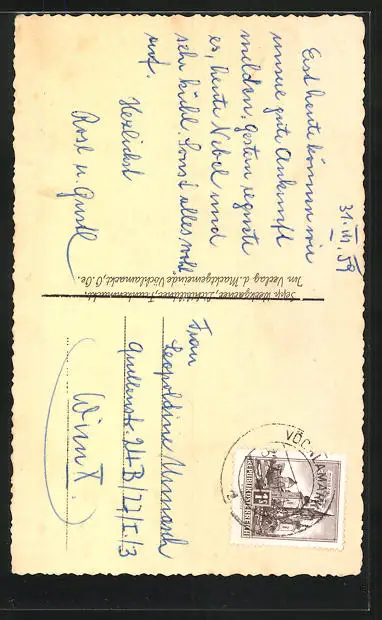 31. VII. 59
Erst heute können wir
unsere gute Ankunft
melden. Gestern regnete
es, heute Nebel und
sehr kühl. Sonst alles wohl
auf.
Herzlichst
Rosl u. Gustl
Sepp Weekgartner, Lichtbildner, Frankenmarkt.
Im Verlag d. Marktgemeinde Vöcklamarkt, O.Öe.
Frau
Leopoldine
Quellenstr. 24B/22/I/3
Wien X.
VÖCKLAMARKT
REPUBLIK ÖSTERREICH